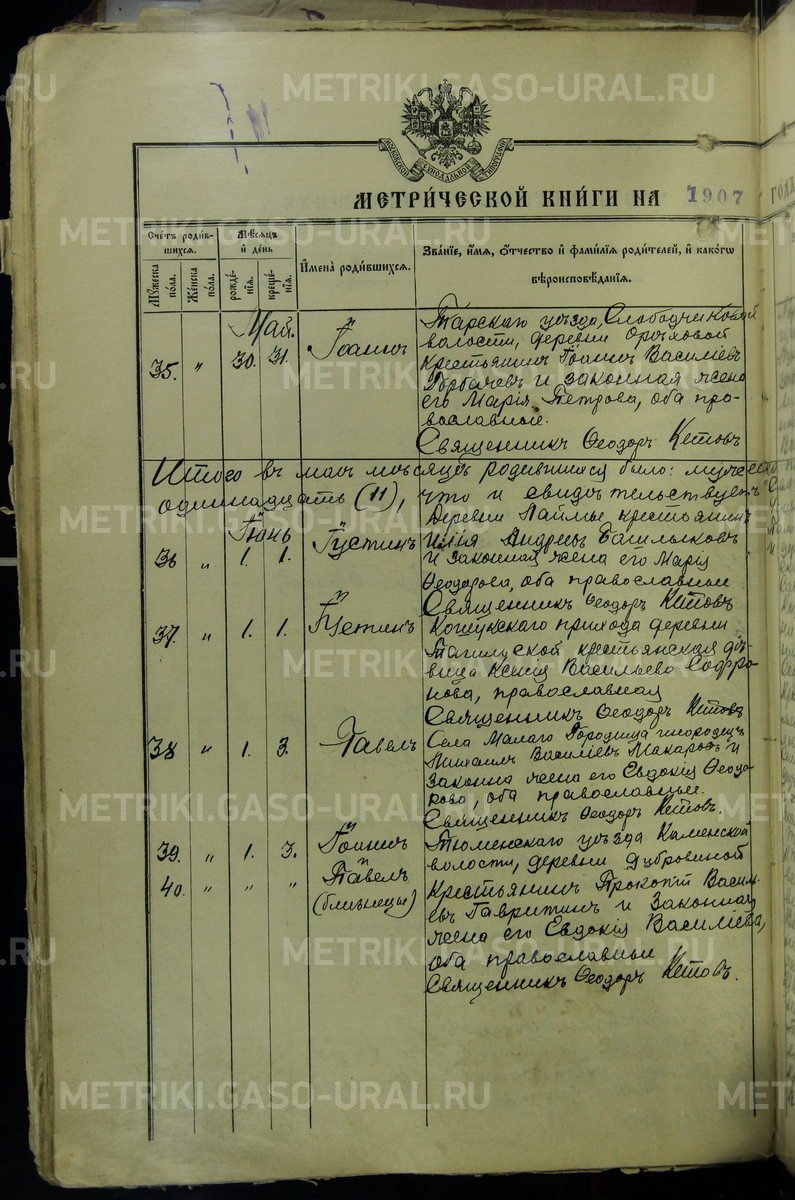 METRIKI.GASO-URAL.RU
МОСКОВСКОЙ СѴНОДАЛЬНОЙ ТИПОГРАФІИ
МЕТРИ́ЧЕСКОЙ КНИ́ГИ НА 1907 ГОДЪ
Счетъ роди́вшихся.
Мужеска по́ла.
Же́нска по́ла.
Мѣ́сяцъ и де́нь
рожде́нія.
креще́нія.
Имена̀ роди́вшихся.
Зва́ніе, и́мя, о́тчество и фами́лія роди́телей, и како́гѡ вѣроисповѣ́данія.
Май.
35. " 30. 31. Іоаннъ
Тарскаго уѣзда, Слободчиковской
волости, деревни Орѣховой
крестьянинъ Іоаннъ Василіевъ
Горбачевъ и законная жена
его Марія Петрова, оба пра-
вославные.
Священникъ Ѳеодоръ Кетовъ
Итого въ маѣ мѣсяцѣ родившихся было: мужеска
одинадцать (11), что и свидѣтельствуетъ
Іюнь
36 " 1. 1. Іустинъ
Деревни Лаймы крестьянинъ
Илія Андреевъ
и законная жена его Марія
Ѳеодорова, оба православные
Священникъ Ѳеодоръ Кетовъ
37. " 1. 1. Іустинъ
Кошукскаго прихода деревни
крестьянская дѣ-
вица Ксенія Васильева Софро-
нова, православная
Священникъ Ѳеодоръ Кетовъ
38 " 1. 3. Павелъ
Села Малаго Городища инородецъ
Михаилъ Василіевъ Макаровъ и
законна жена его Евдокія Ѳеодо-
рова, оба православные.
Священникъ Ѳеодоръ Кетовъ.
39. " 1. 3. Іоаннъ
40. " " " Павелъ
(близнецы)
Тюменскаго уѣзда Каменской
волости, деревни Дубровиной
крестьянинъ Прокопій Василь-
евъ Гавритинъ и законная
жена его Евдокія Василіева,
оба православные
Священникъ Ѳеодоръ Кетовъ.